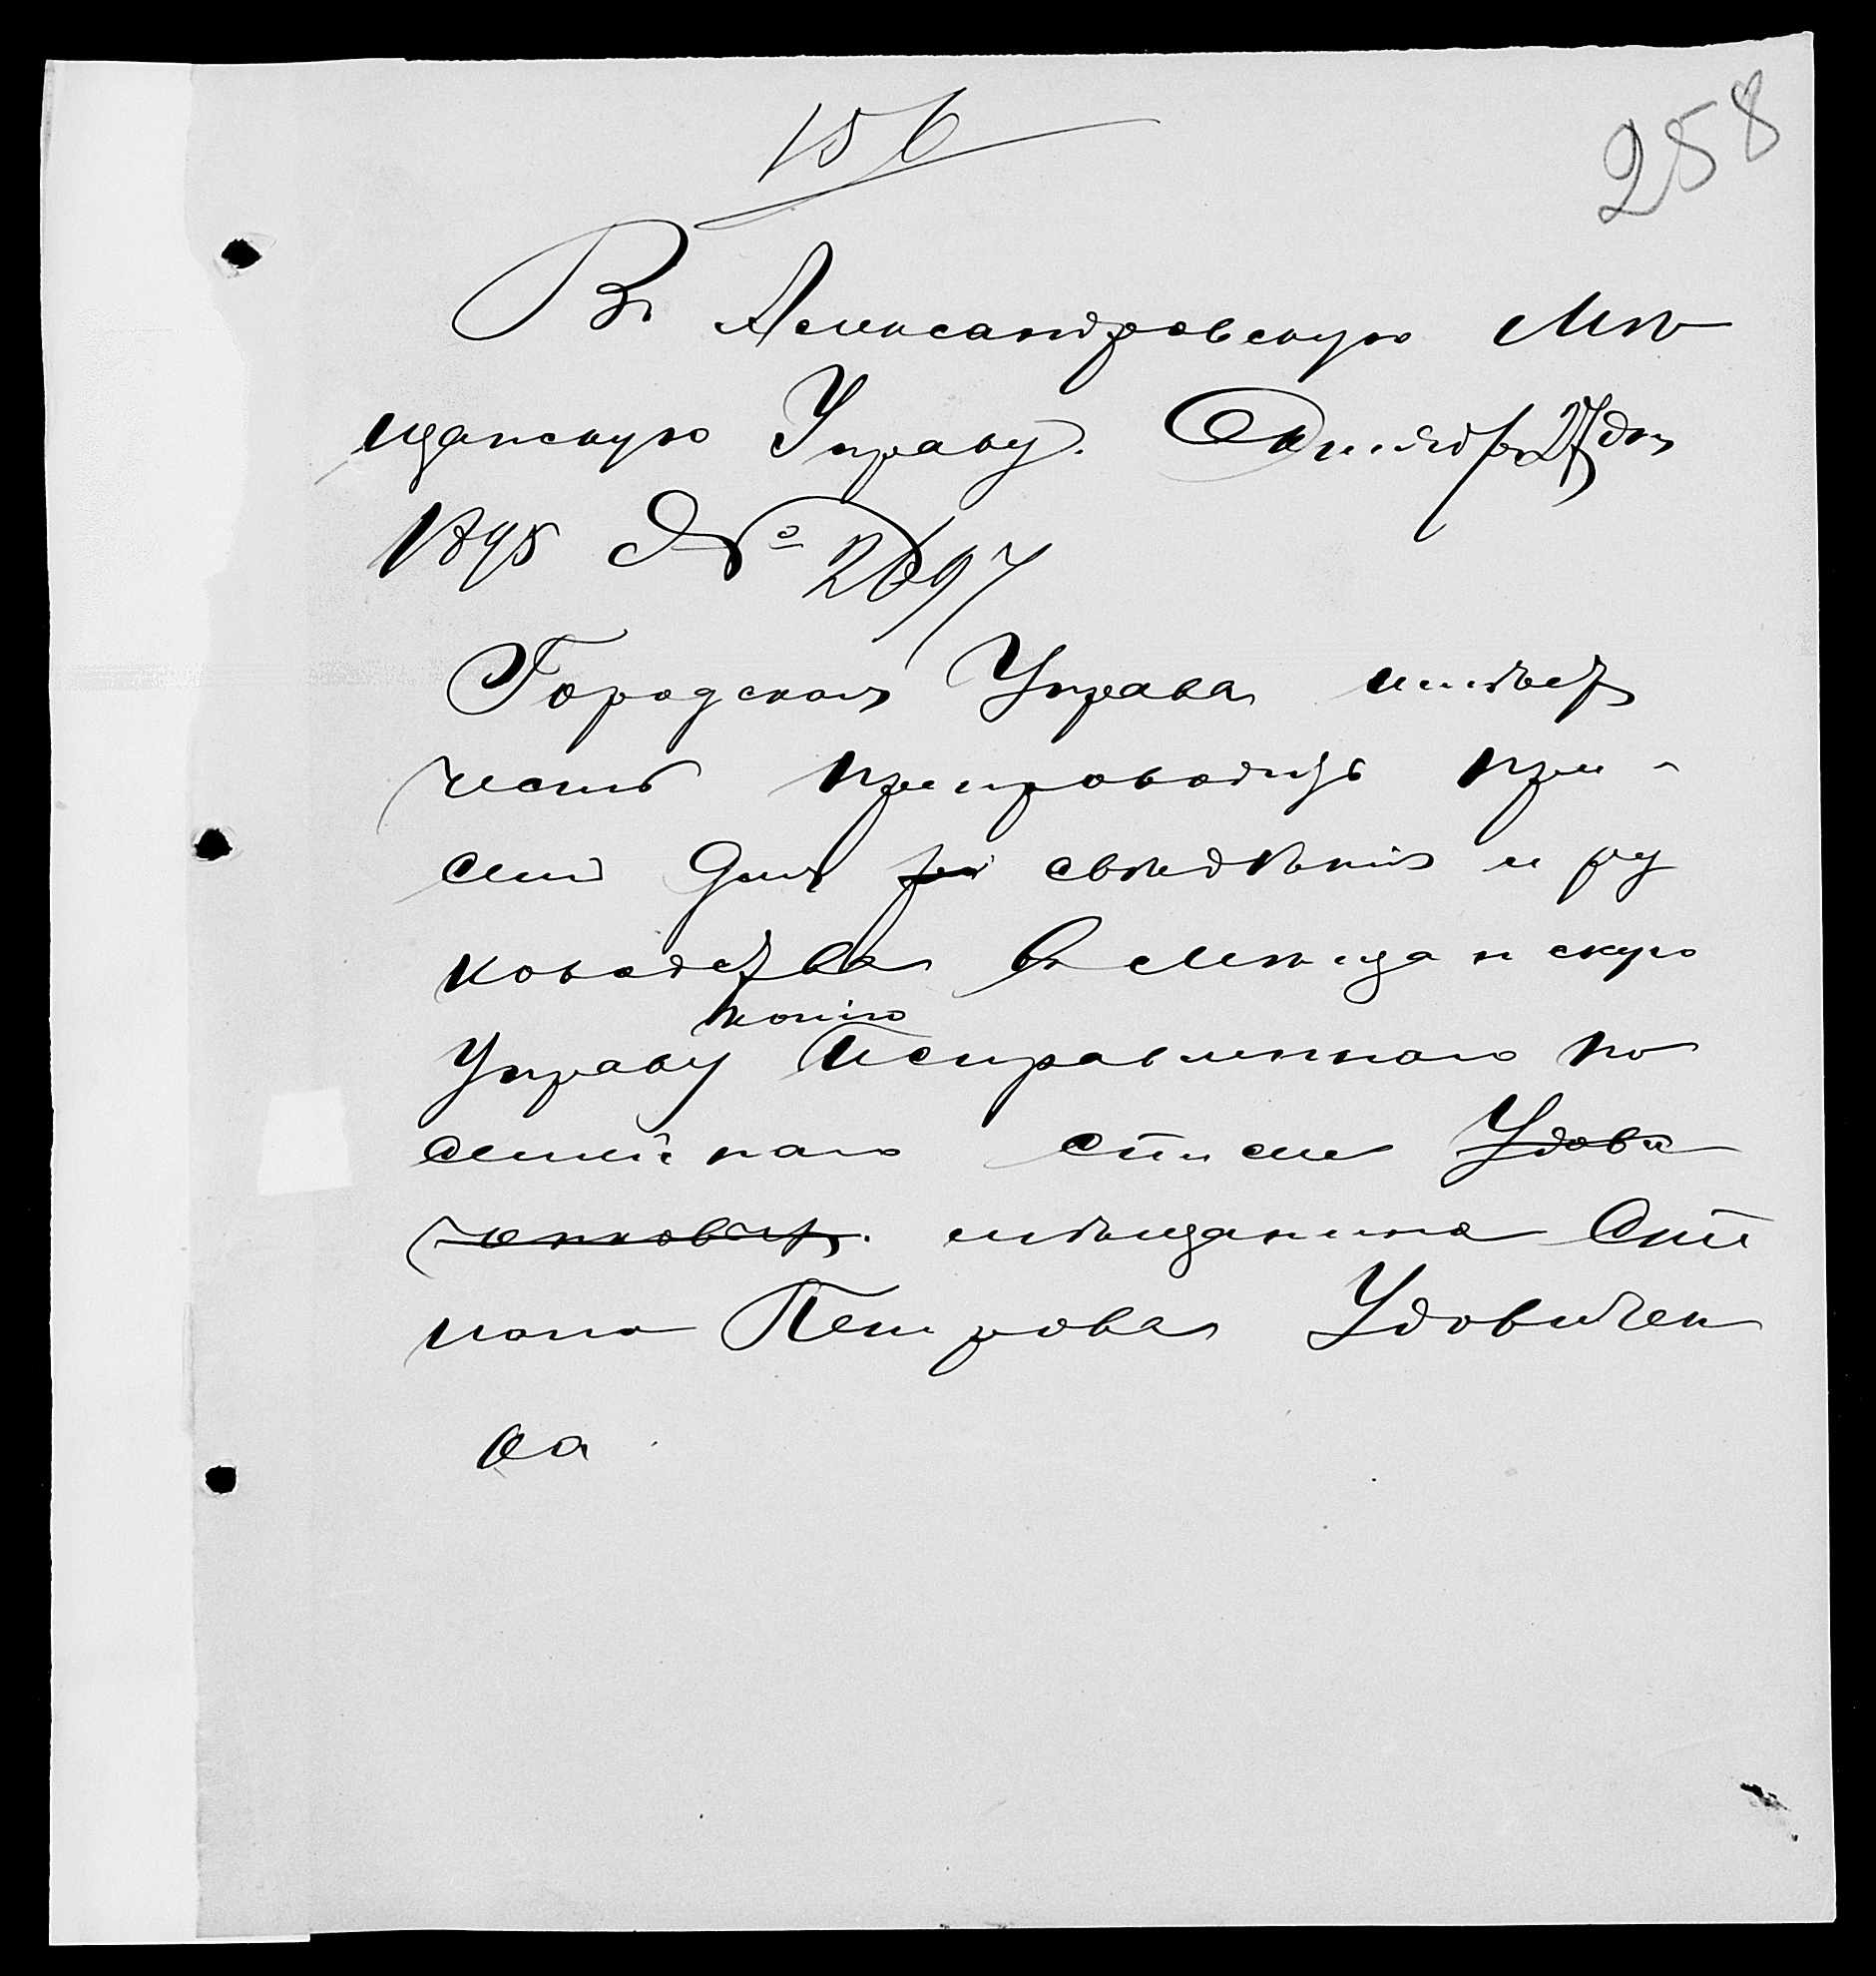 156
258
Въ Александровскую Мѣ
щанскую Управу. Октября 27 дня
1895 № 2697
Городская Управа имѣетъ
честь препроводить при
семъ для свѣдѣнія и ру
ководства въ Мѣщанскую
копію
Управу Исправленнаго по
семейнаго списка Удови
ченковыхъ. мѣщанина Сте
пана Петрова Удовичен
ка